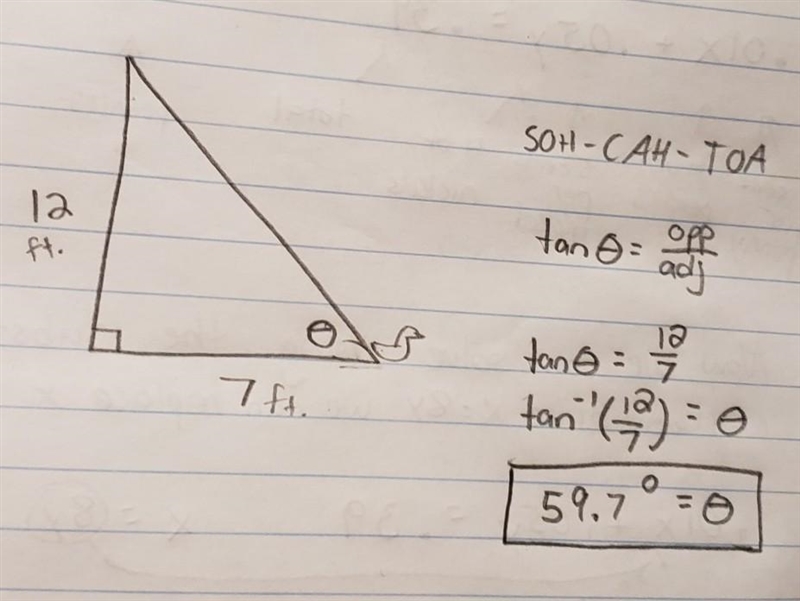 12
ft.
θ
7 ft.
SOH-CAH-TOA
tanθ = opp/adj
tanθ = 12/7
tan⁻¹(12/7) = θ
59.7° = θ